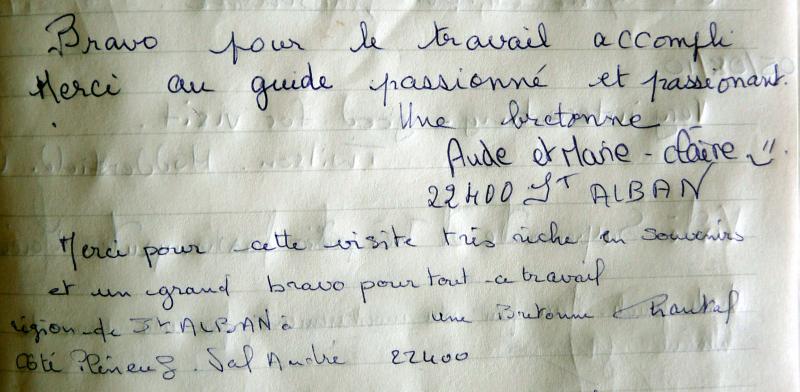 Bravo pour le travail accompli
Merci au guide passionné et passionant.
Une bretonne
Aude et Marie-claire
22400 ST ALBAN
Merci pour cette visite très riche en souvenirs
et un grand bravo pour tout ce travail
une Bretonne Chantal
région de St ALBAN à
côté Pléneuf. Val André 22400